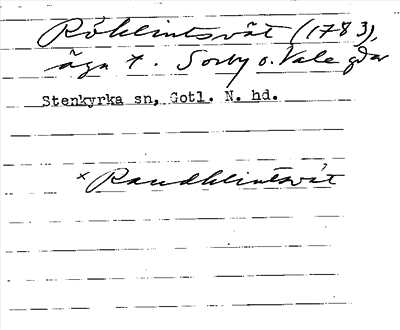 Röklintsvät (1783),
äga t. Sorby o. Vale gdar
Stenkyrka sn, Gotl. N. hd.
× Raudklintsvät